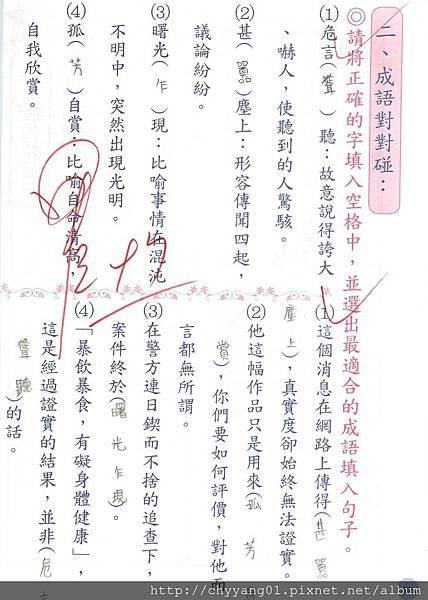 二、成語對對碰：
◎請將正確的字填入空格中，並選出最適合的成語填入句子。
(1)危言(聳)聽：故意說得誇大
、嚇人，使聽到的人驚駭。
(2)甚(囂)塵上：形容傳聞四起，
議論紛紛。
(3)曙光(乍)現：比喻事情在混沌
不明中，突然出現光明。
(4)孤(芳)自賞：比喻自命清高，
自我欣賞。
(1)這個消息在網路上傳得(甚囂
塵上)，真實度卻始終無法證實。
(2)他這幅作品只是用來(孤芳
賞)，你們要如何評價，對他而
言都無所謂。
(3)在警方連日鍥而不捨的追查下，
案件終於(曙光乍現)。
(4)「暴飲暴食，有礙身體健康」，
這是經過證實的結果，並非(危言
聳聽)的話。
http://chyyang01.pixnet.net/album